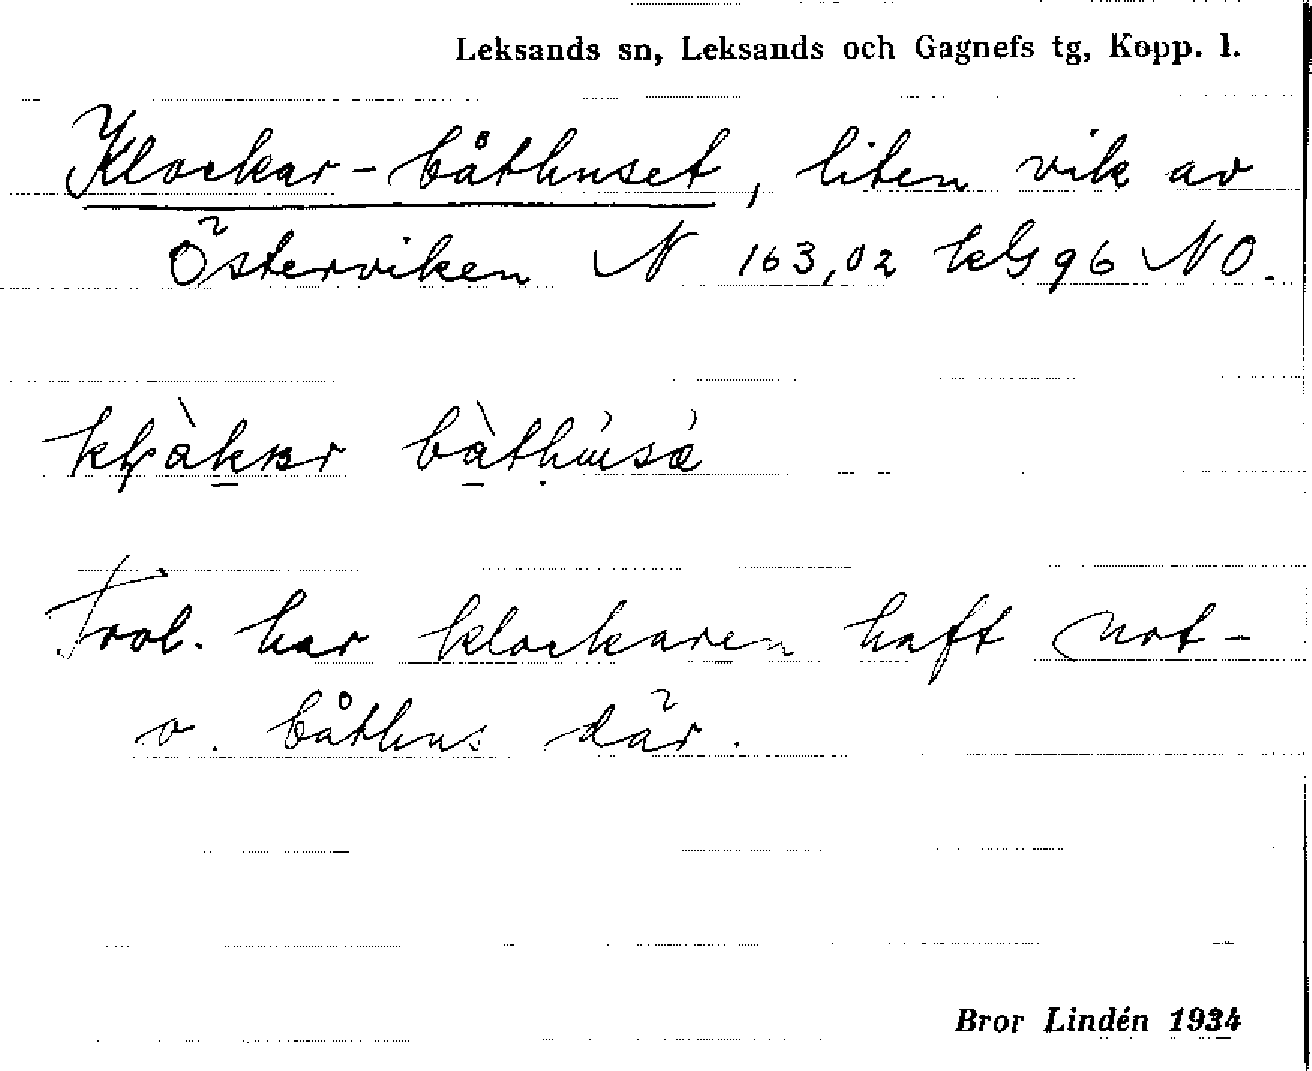 Leksands sn, Leksands och Gagnefs tg, Kopp. l.
Klockar-båthuset, liten vik av
Österviken N 163,02 kG96 NO.
båthúsä
Trol. har klockaren haft not-
o. båthus där.
Bror Lindén 1934